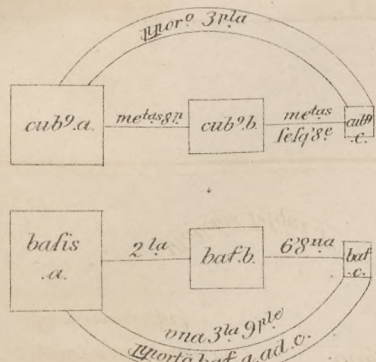 pporo 3pla
cub9.a.
metas8n
cub9.b.
metas
sesq'8e
cub9
.c.
basis
.a.
2la
bas.b.
6'8na
bas
.c.
vna 3la 9ple
pporto bas.a.ad.c.